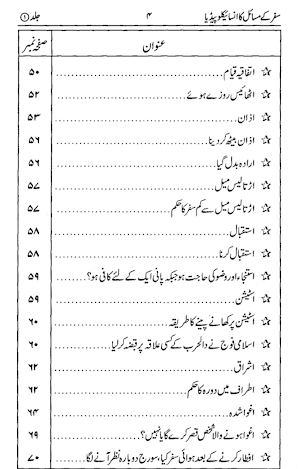 سفر کے مسائل کا انسائیکلوپیڈیا ۴ جلد ①
عنوان صفحہ نمبر
☆ اتفاقیہ قیام ۵۰
☆ اٹھائیس روزے ہوئے ۵۲
☆ اذان ۵۳
☆ اذان بیٹھ کر دینا ۵۶
☆ ارادہ بدل گیا ۵۶
☆ اڑتالیس میل ۵۷
☆ اڑتالیس میل سے کم سفر کا حکم ۵۷
☆ استقبال ۵۸
☆ استقبال کرنا ۵۸
☆ استنجاء اور وضو کی حاجت ہو جبکہ پانی ایک کے لئے کافی ہو؟ ۵۹
☆ اسٹیشن ۵۹
☆ اسٹیشن پر کھانے پینے کا طریقہ ۶۰
☆ اسلامی فوج نے دالحرب کے کسی علاقہ پر قبضہ کرلیا ۶۰
☆ اشراق ۶۲
☆ اطراف میں دورہ کا حکم ۶۲
☆ اغوا شدہ ۶۴
☆ اغوا ہونے والا شخص قصر کرے گا یا نہیں؟ ۶۹
☆ افطار کرنے کے بعد ہوائی سفر کیا، سورج دوبارہ نظر آنے لگا ۷۰